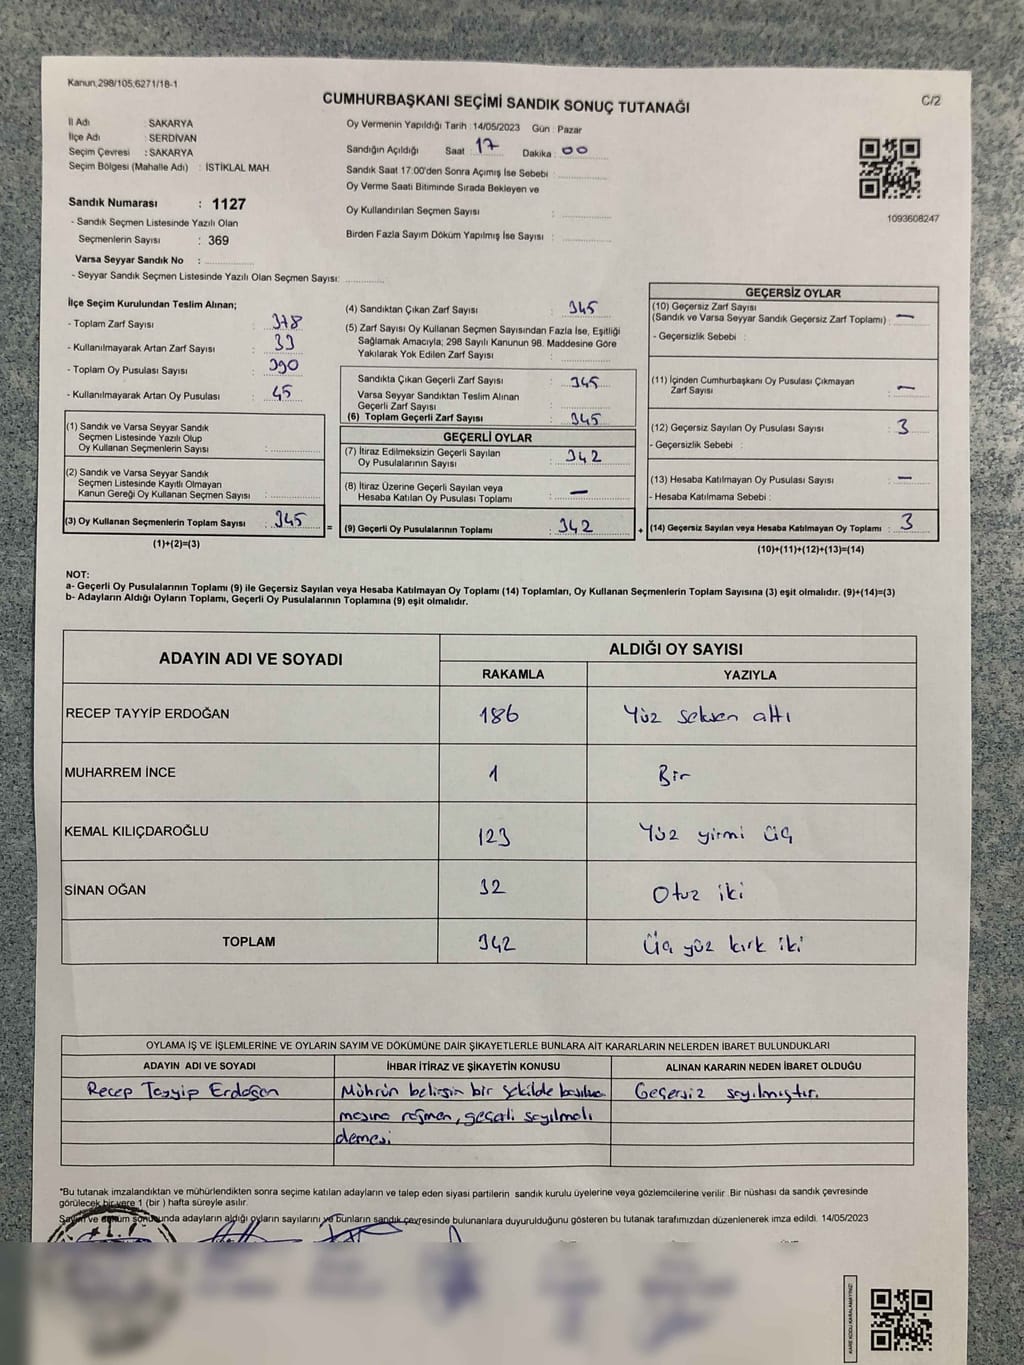 Kanun.298/105,6271/18-1
CUMHURBAŞKANI SEÇİMİ SANDIK SONUÇ TUTANAĞI
C/2
İl Adı : SAKARYA
İlçe Adı : SERDİVAN
Seçim Çevresi : SAKARYA
Seçim Bölgesi (Mahalle Adı) : İSTİKLAL MAH.
Sandık Numarası : 1127
- Sandık Seçmen Listesinde Yazılı Olan
Seçmenlerin Sayısı : 369
Varsa Seyyar Sandık No :
- Seyyar Sandık Seçmen Listesinde Yazılı Olan Seçmen Sayısı:
Oy Vermenin Yapıldığı Tarih : 14/05/2023 Gün : Pazar
Sandığın Açıldığı Saat : 17 Dakika : 00
Sandık Saat 17:00'den Sonra Açımış İse Sebebi :
Oy Verme Saati Bitiminde Sırada Bekleyen ve
Oy Kullandırılan Seçmen Sayısı :
Birden Fazla Sayım Döküm Yapılmış İse Sayısı :
1093608247
İlçe Seçim Kurulundan Teslim Alınan;
- Toplam Zarf Sayısı : 378
- Kullanılmayarak Artan Zarf Sayısı : 33
- Toplam Oy Pusulası Sayısı : 390
- Kullanılmayarak Artan Oy Pusulası : 45
(1) Sandık ve Varsa Seyyar Sandık
Seçmen Listesinde Yazılı Olup
Oy Kullanan Seçmenlerin Sayısı :
(2) Sandık ve Varsa Seyyar Sandık
Seçmen Listesinde Kayıtlı Olmayan
Kanun Gereği Oy Kullanan Seçmen Sayısı :
(3) Oy Kullanan Seçmenlerin Toplam Sayısı : 345 =
(1)+(2)=(3)
(4) Sandıktan Çıkan Zarf Sayısı : 345
(5) Zarf Sayısı Oy Kullanan Seçmen Sayısından Fazla İse, Eşitliği
Sağlamak Amacıyla; 298 Sayılı Kanunun 98. Maddesine Göre
Yakılarak Yok Edilen Zarf Sayısı :
Sandıkta Çıkan Geçerli Zarf Sayısı : 345
Varsa Seyyar Sandıktan Teslim Alınan
Geçerli Zarf Sayısı :
(6) Toplam Geçerli Zarf Sayısı : 345
GEÇERLİ OYLAR
(7) İtiraz Edilmeksizin Geçerli Sayılan
Oy Pusulalarının Sayısı : 342
(8) İtiraz Üzerine Geçerli Sayılan veya
Hesaba Katılan Oy Pusulası Toplamı : —
(9) Geçerli Oy Pusulalarının Toplamı : 342 +
GEÇERSİZ OYLAR
(10) Geçersiz Zarf Sayısı
(Sandık ve Varsa Seyyar Sandık Geçersiz Zarf Toplamı) : —
- Geçersizlik Sebebi :
(11) İçinden Cumhurbaşkanı Oy Pusulası Çıkmayan
Zarf Sayısı : —
(12) Geçersiz Sayılan Oy Pusulası Sayısı : 3
- Geçersizlik Sebebi :
(13) Hesaba Katılmayan Oy Pusulası Sayısı : —
- Hesaba Katılmama Sebebi :
(14) Geçersiz Sayılan veya Hesaba Katılmayan Oy Toplamı : 3
(10)+(11)+(12)+(13)=(14)
NOT:
a- Geçerli Oy Pusulalarının Toplamı (9) ile Geçersiz Sayılan veya Hesaba Katılmayan Oy Toplamı (14) Toplamları, Oy Kullanan Seçmenlerin Toplam Sayısına (3) eşit olmalıdır. (9)+(14)=(3)
b- Adayların Aldığı Oyların Toplamı, Geçerli Oy Pusulalarının Toplamına (9) eşit olmalıdır.
ADAYIN ADI VE SOYADI
ALDIĞI OY SAYISI
RAKAMLA YAZIYLA
RECEP TAYYİP ERDOĞAN 186 Yüz seksen altı
MUHARREM İNCE 1 Bir
KEMAL KILIÇDAROĞLU 123 Yüz yirmi üç
SİNAN OĞAN 32 Otuz iki
TOPLAM 342 Üç yüz kırk iki
OYLAMA İŞ VE İŞLEMLERİNE VE OYLARIN SAYIM VE DÖKÜMÜNE DAİR ŞİKAYETLERLE BUNLARA AİT KARARLARIN NELERDEN İBARET BULUNDUKLARI
ADAYIN ADI VE SOYADI İHBAR İTİRAZ VE ŞİKAYETİN KONUSU ALINAN KARARIN NEDEN İBARET OLDUĞU
Recep Tayyip Erdoğan Mührün belirgin bir şekilde basılma Geçersiz sayılmıştır.
masına rağmen, geçerli sayılmalı
demesi
"Bu tutanak imzalandıktan ve mühürlendikten sonra seçime katılan adayların ve talep eden siyasi partilerin sandık kurulu üyelerine veya gözlemcilerine verilir .Bir nüshası da sandık çevresinde
görülecek bir yere 1 (bir ) hafta süreyle asılır.
Sayım ve döküm sonucunda adayların aldığı oyların sayılarını ve bunların sandık çevresinde bulunanlara duyurulduğunu gösteren bu tutanak tarafımızdan düzenlenerek imza edildi. 14/05/2023
KARE KODU KARALAMAYINIZ!